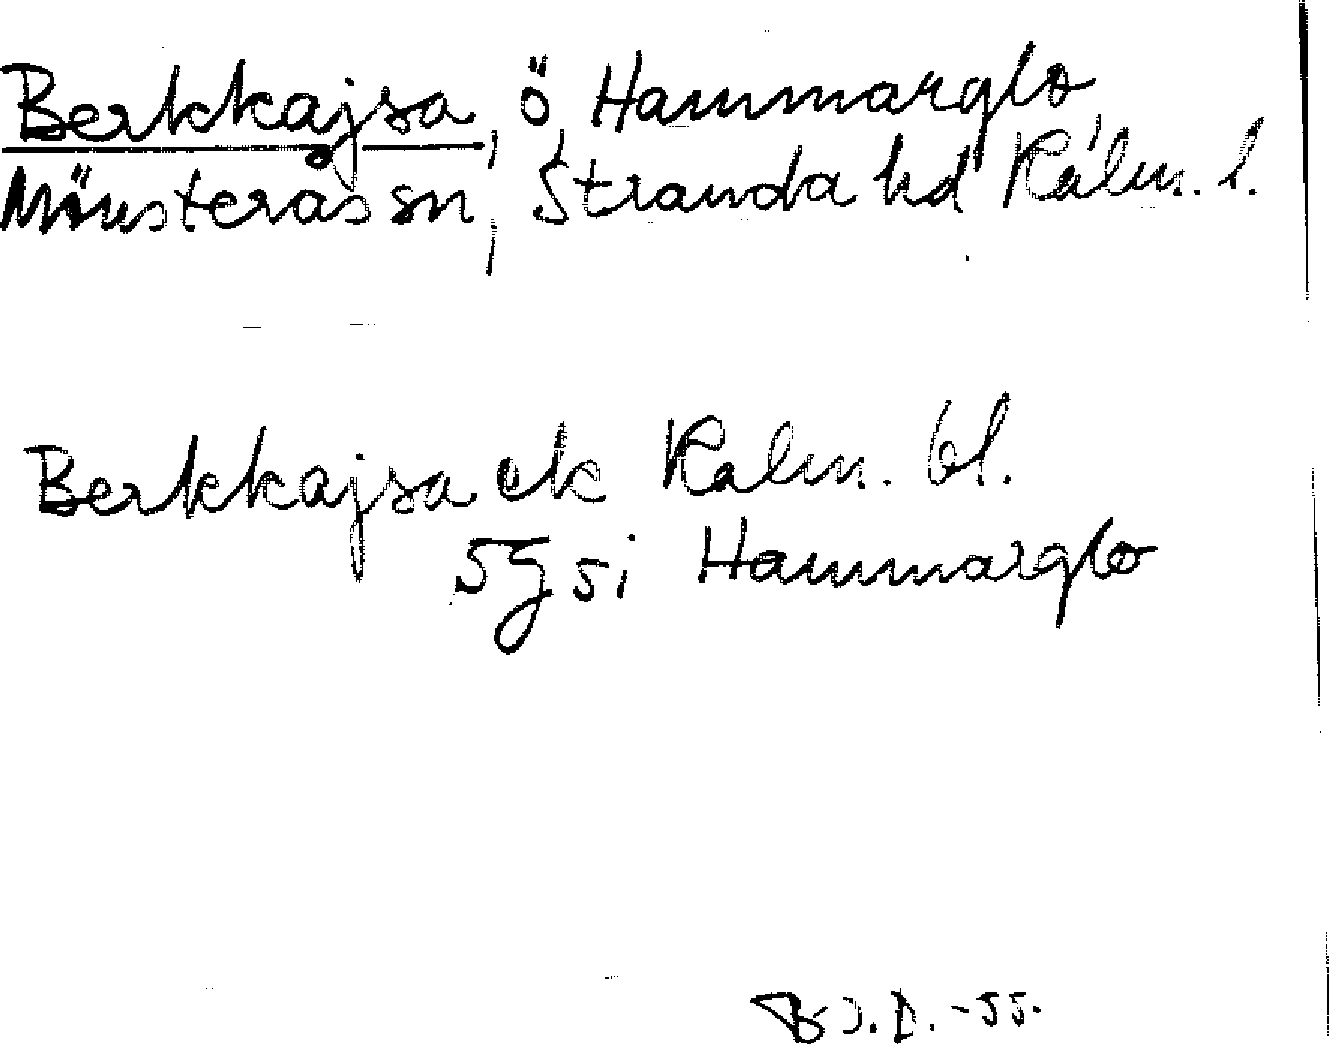 Berkkajsa, ö, Hammarglo
Mönsterås sn, Stranda hd Kalm. l.
Berkkajsa ek Kalm. bl.
5g5i Hammarglo
-55.